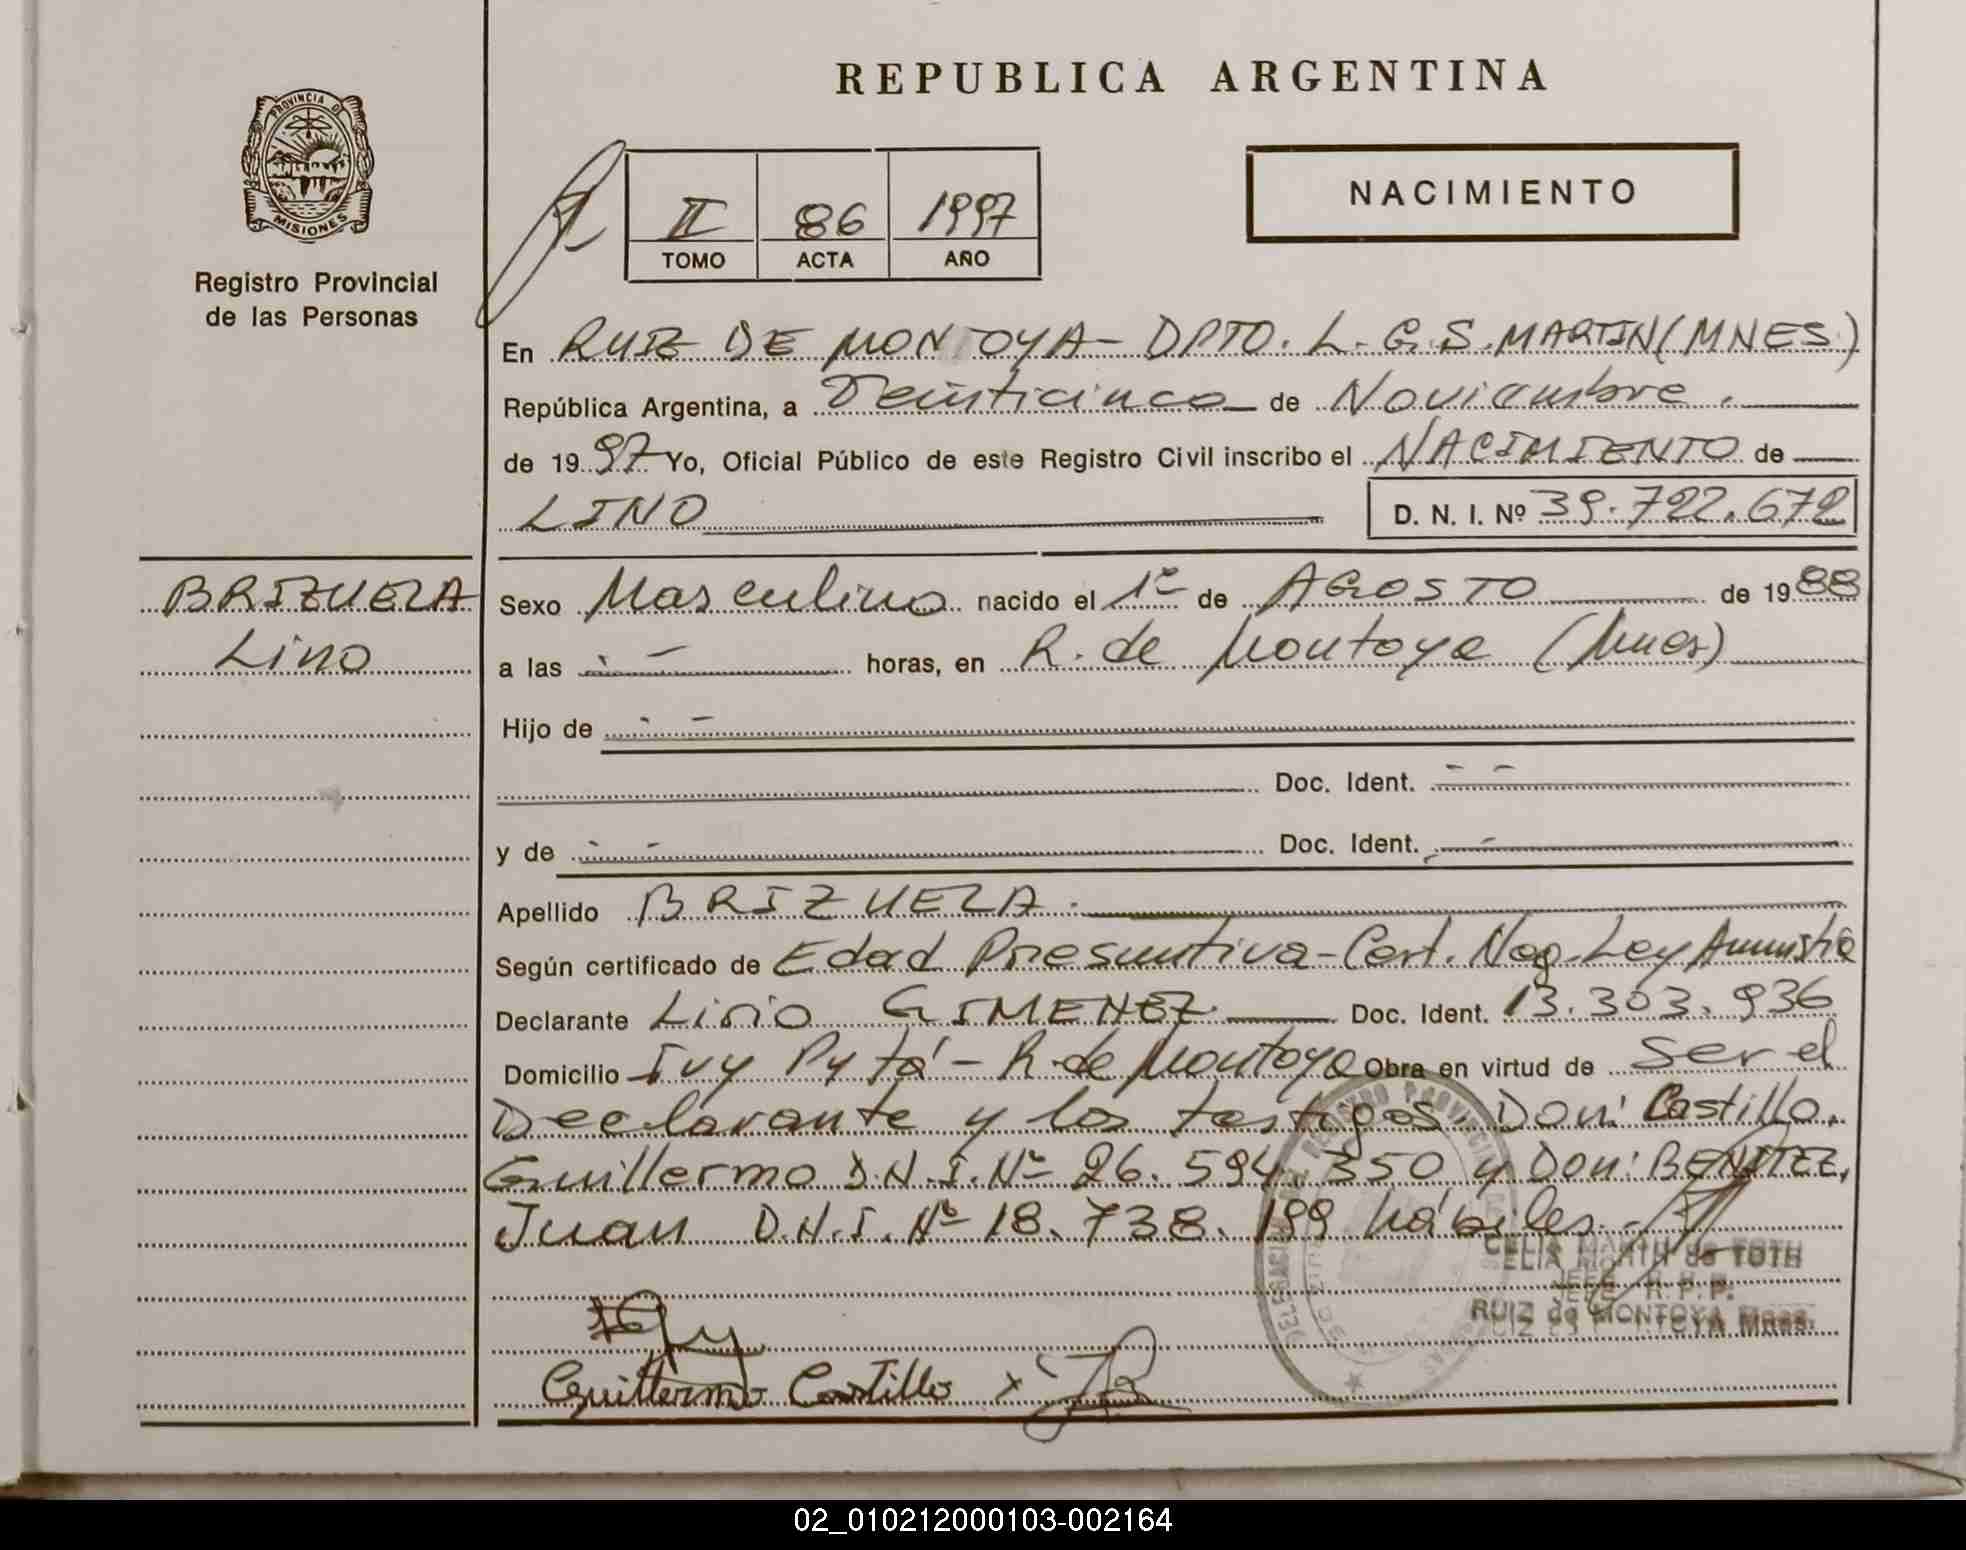 REPUBLICA ARGENTINA
PROVINCIA DE
MISIONES
Registro Provincial
de las Personas
II 86 1997
TOMO ACTA AÑO
NACIMIENTO
En RUIZ DE MONTOYA - DPTO. L. G. S. MARTIN (MNES.)
República Argentina, a Veinticinco de Noviembre.
de 1997 Yo, Oficial Público de este Registro Civil inscribo el NACIMIENTO de
LINO D. N. I. Nº 39.722.672
BRIZUELA
Lino
Sexo Masculino nacido el 1º de AGOSTO de 1988
a las - horas, en R. de Montoya (Mnes)
Hijo de - -
Doc. Ident. - -
y de - - Doc. Ident. - -
Apellido BRIZUELA.
Según certificado de Edad Presuntiva - Cert. Neg. Ley Amnistia
Declarante Lirio GIMENEZ. Doc. Ident. 13.303.936
Domicilio Ivy Pytá - R. de Montoya Obra en virtud de Ser el
Declarante y los testigos. Don: Castillo,
Guillermo D.N.I. Nº 26.594.350 y Don: BENITEZ,
Juan D.N.I. Nº 18.738.199 hábiles.-
de TOTH
JEFE R. P. P.
RUIZ de MONTOYA Mnes.
Guillermo Castillo x
02_010212000103-002164